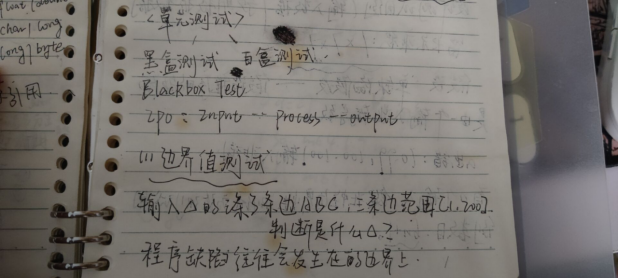 float | doub
char | long
long | byte
引用
<单元测试>
黑盒测试 白盒测试
Blackbox Test
Ipo : Input -- Process - output
(1) 边界值测试
输入△的三条边ABC,三条边范围[1,200].
判断是什么△?
程序缺陷往往会发生在的边界上.